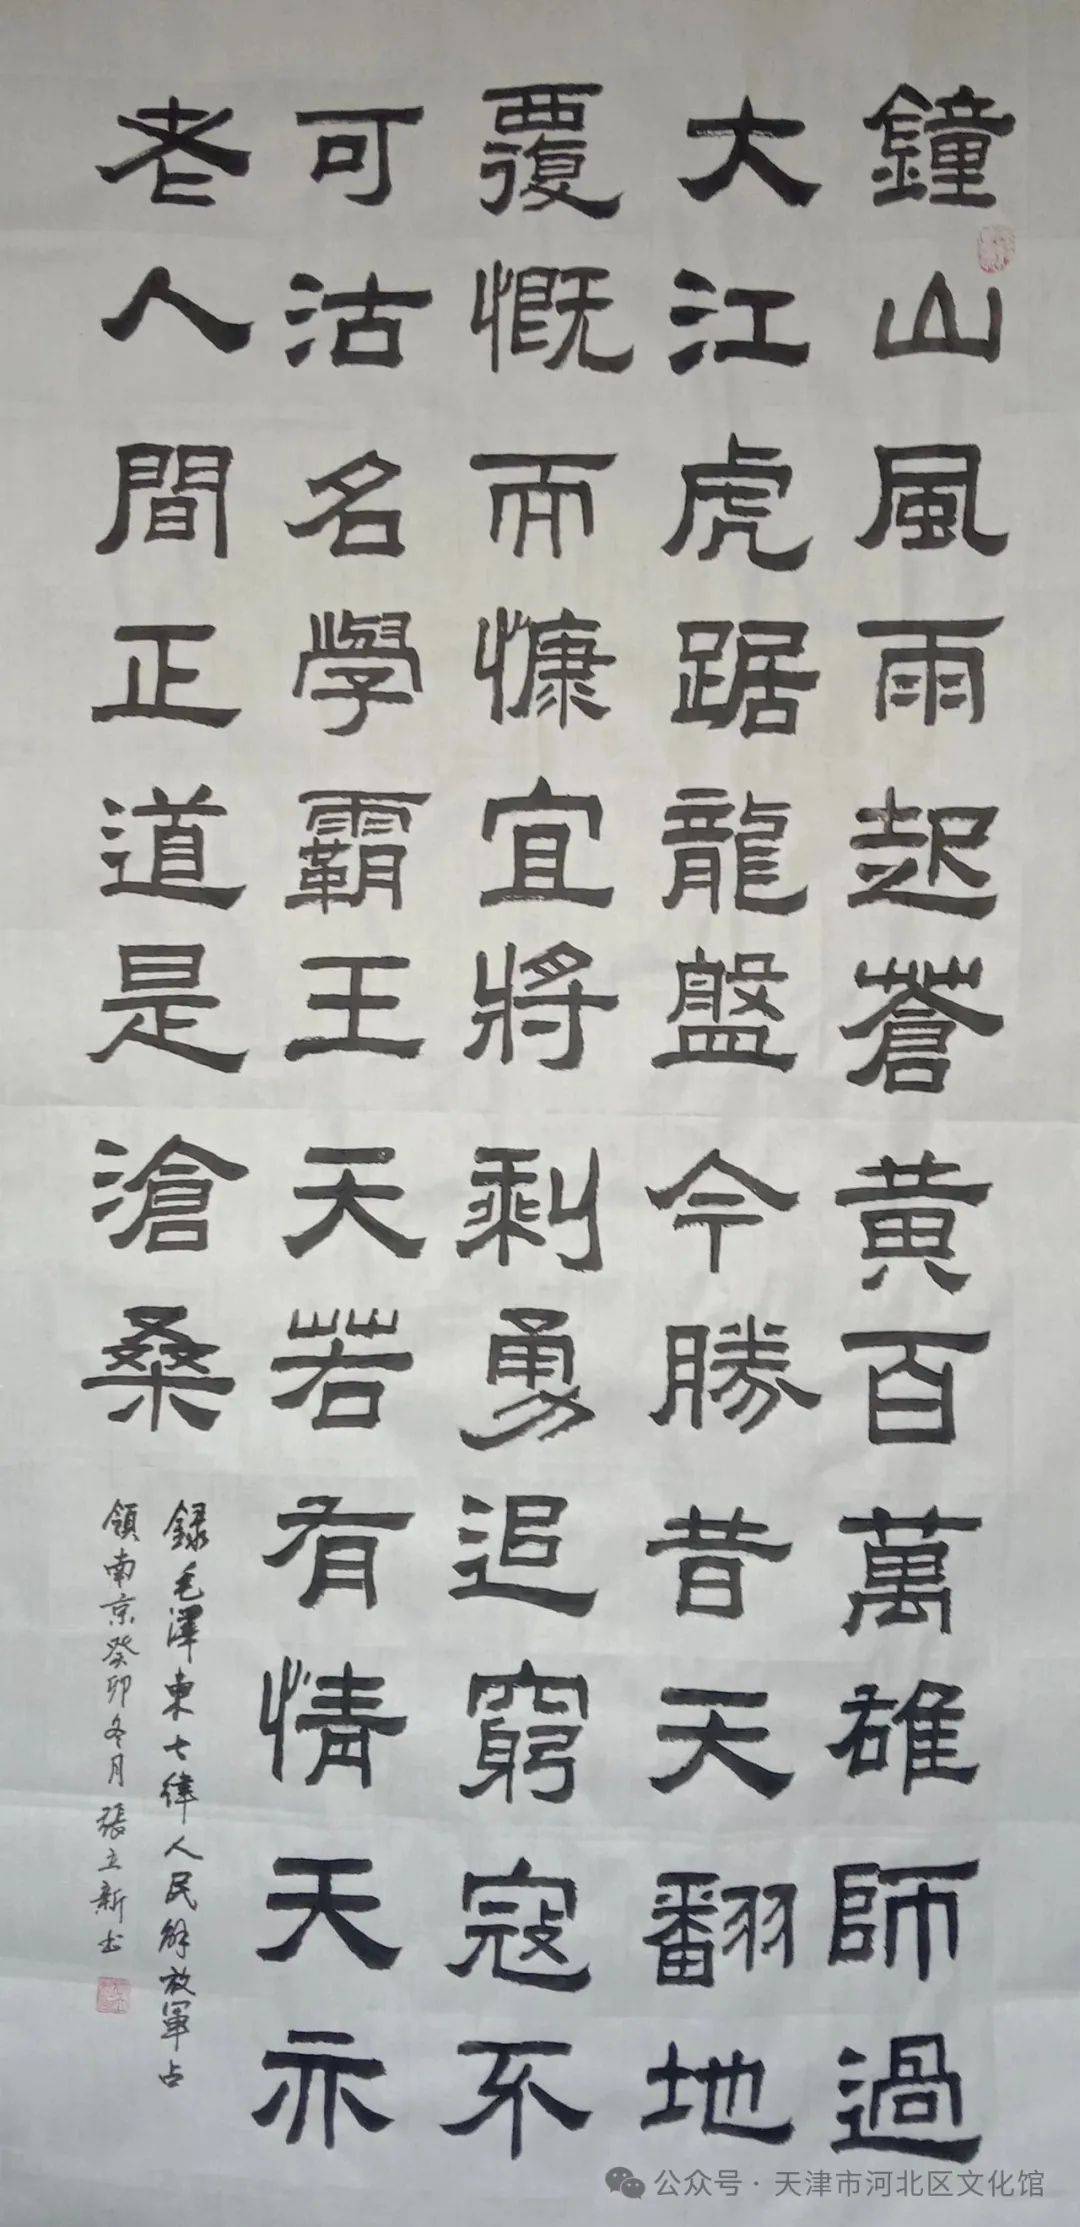 鐘山風雨起蒼黃百萬雄師過
大江虎踞龍盤今勝昔天翻地
覆慨而慷宜將剩勇追窮寇不
可沽名學霸王天若有情天亦
老人間正道是滄桑
錄毛澤東七律人民解放軍占
領南京癸卯冬月張立新书
公众号·天津市河北区文化馆